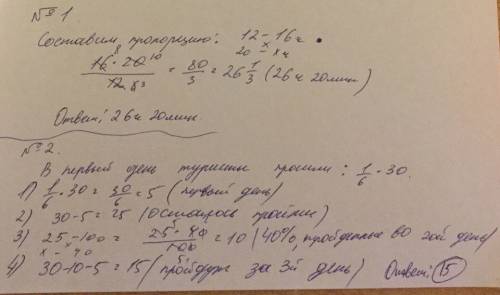 № 1
Составим пропорцию: 12 – 16ч
20 – xч
16 · 20 / 12 = 80/3 = 26 1/3 (26ч 20мин)
Ответ: 26ч 20мин.
№ 2.
В первый день туристы прошли: 1/6 · 30.
1) 1/6 · 30 = 30/6 = 5 (первый день)
2) 30-5 = 25 (Осталось пройти)
3) 25 – 100 = 25 · 40 / 100 = 10 (40%, пройденные во 2ой день)
x – 40
4) 30-10-5 = 15 (пройдут за 3й день) Ответ: 15